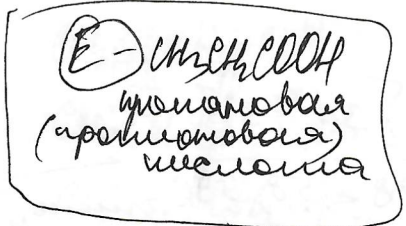 E - CH3CH2COOH
пропановая
(пропионовая)
кислота